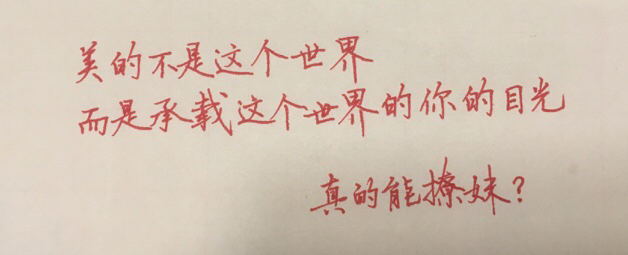 美的不是这个世界
而是承载这个世界的你的目光
真的能撩妹？